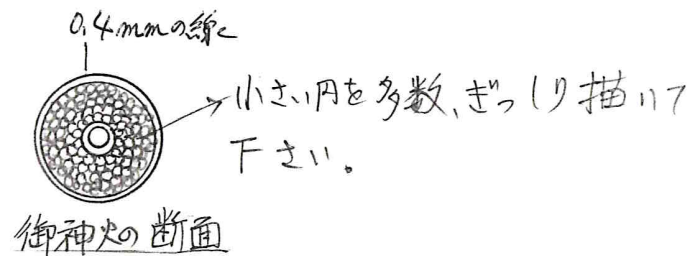 0.4mmの線に
小さい円を多数、ぎっしり描いて
下さい。
御神火の断面